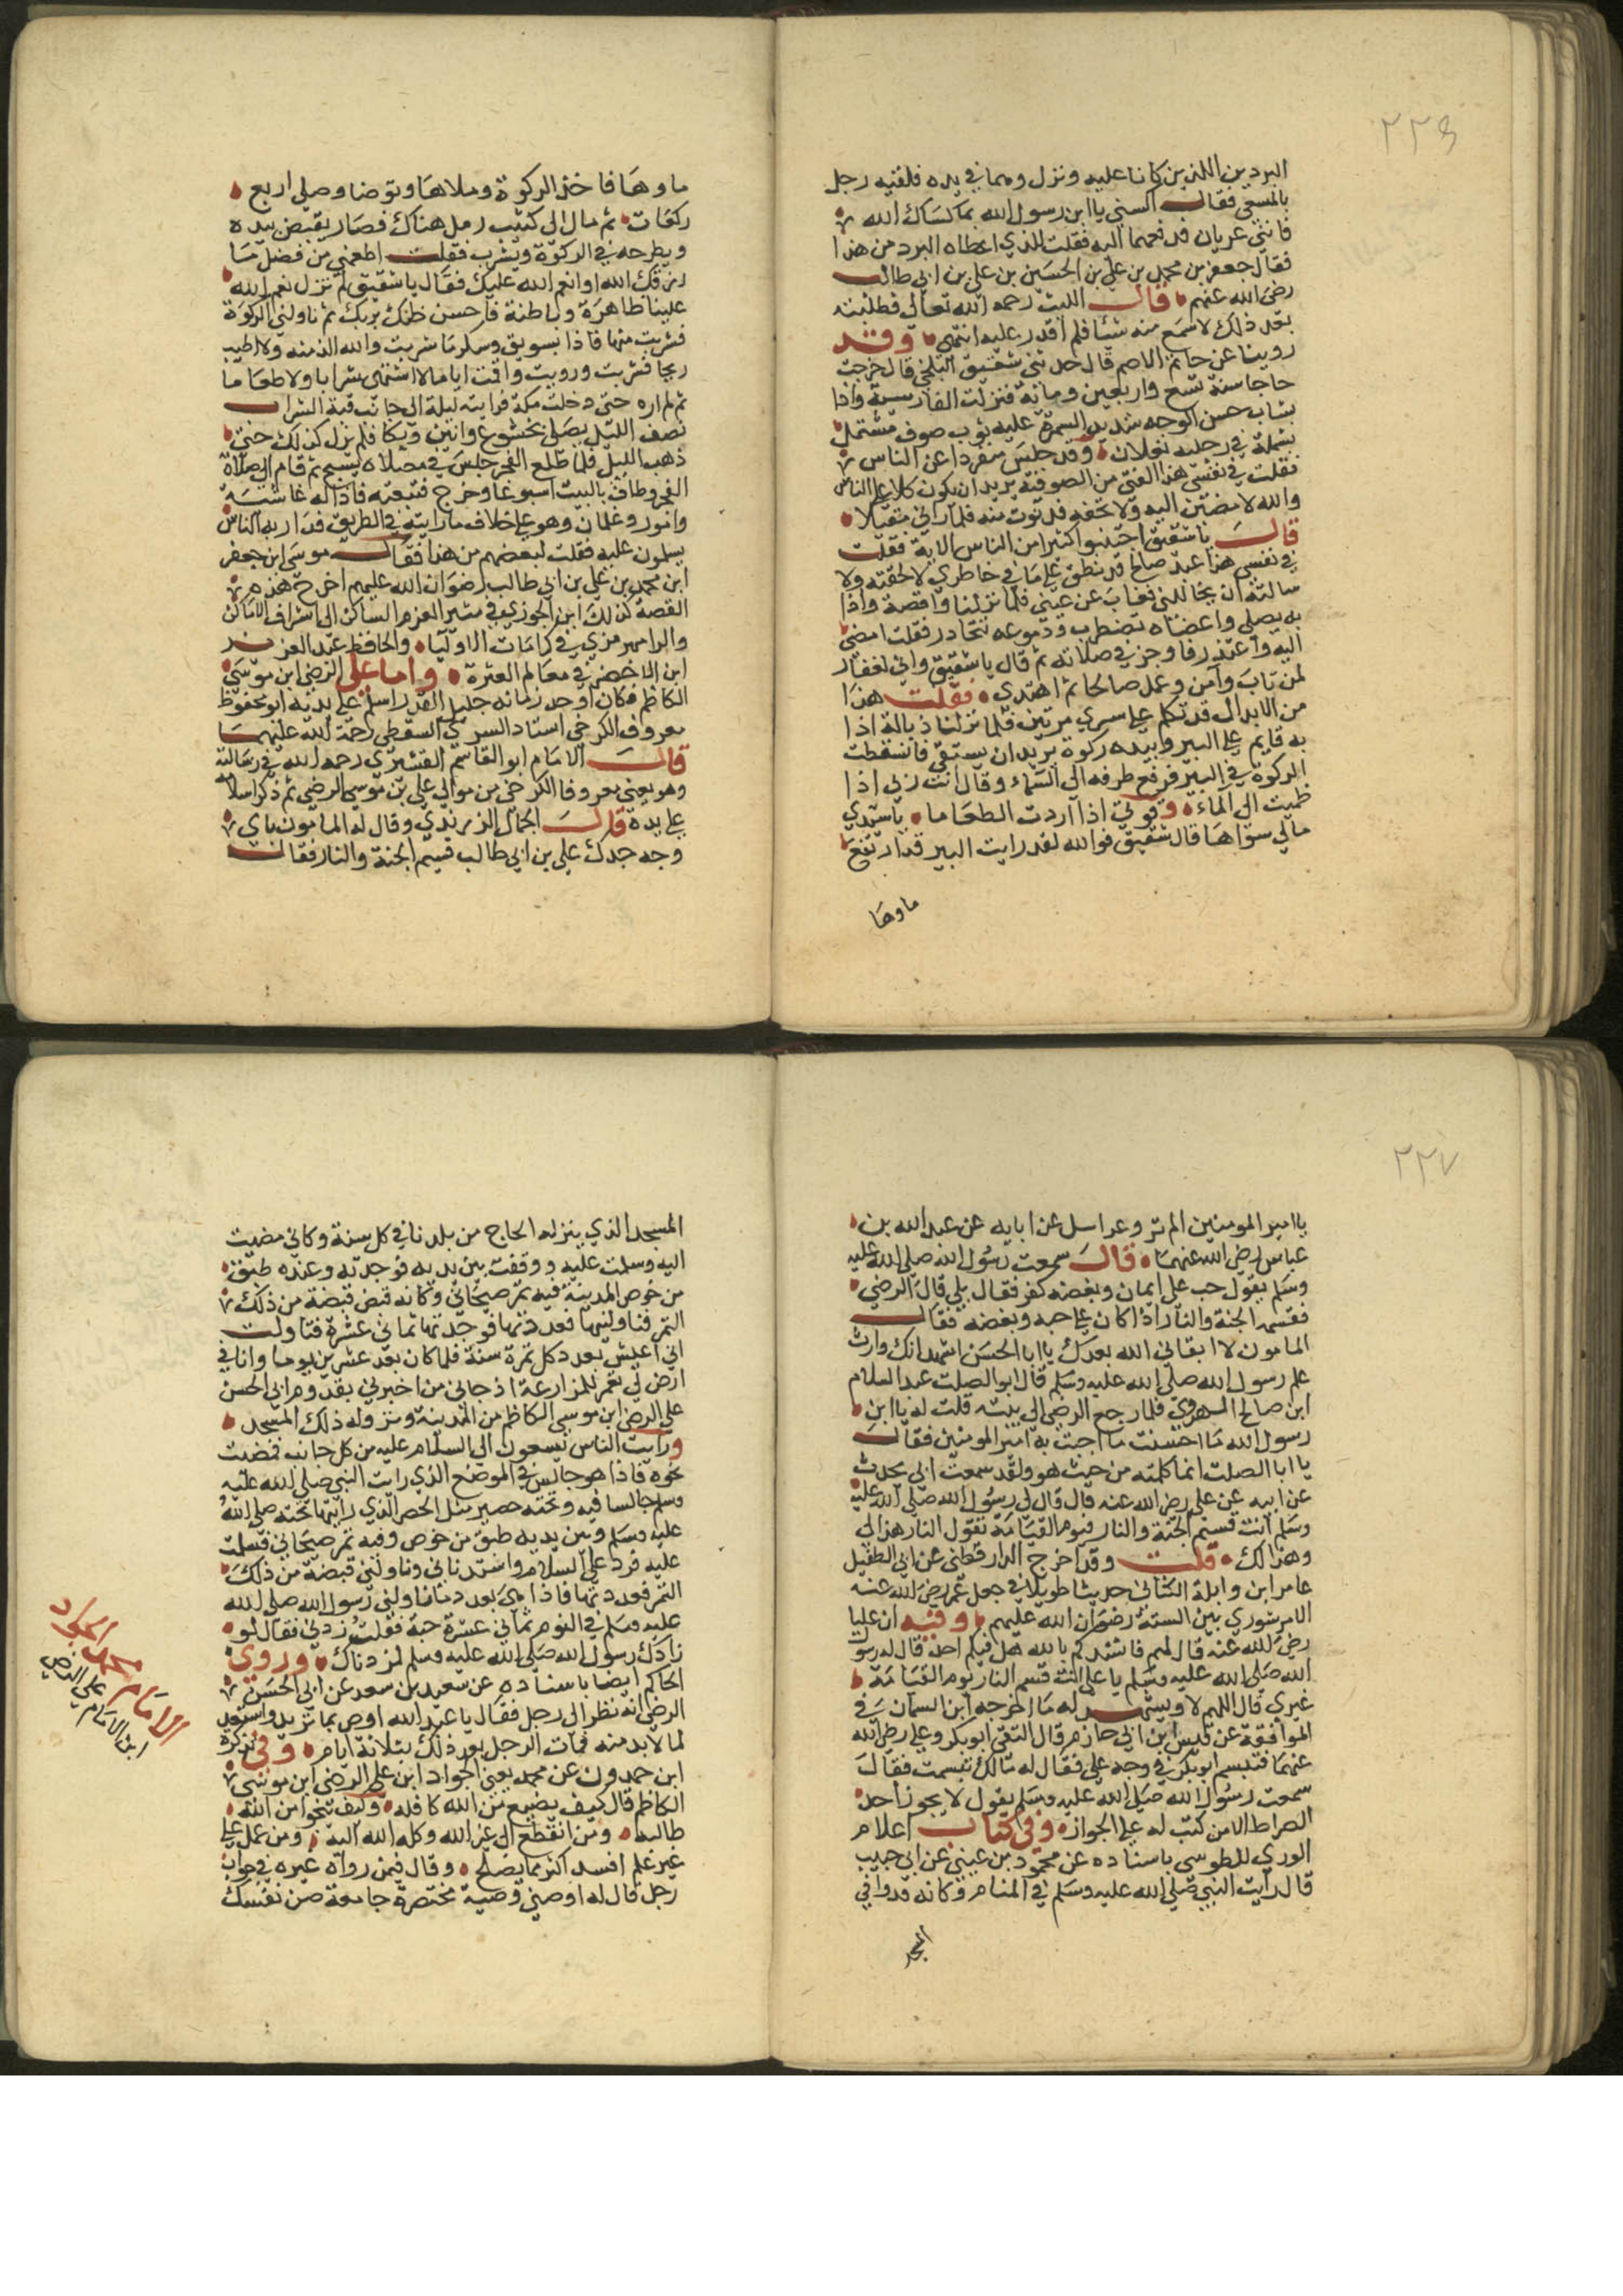 ٢٢٦
البردين اللذين كانا عليه ونزل وهما في يده فلقيه رجل
بالمسعى فقال اكسني يا ابن رسول الله بما كساك الله
فانني عريان فدفعهما اليه فقلت للذي اعطاه البرد من هذا
فقال جعفر بن محمد بن علي بن الحسين بن علي بن ابي طالب
رضي الله عنهم قال الليث رحمه الله تعالى فطلبته
بعد ذلك لاسمع منه شئا فلم اقدر عليه انتهى وقد
روينا عن حاتم الاصم قال حدثني شقيق البلخي قال خرجت
حاجا سنة تسع واربعين ومائة فنزلت القادسية واذا
بشاب حسن الوجه شديد السمرة عليه ثوب صوف مشتمل
بشملة في رجليه نعلان وقد جلس منفردا عن الناس
فقلت في نفسي هذا الفتى من الصوفية يريد ان يكون كلا على الناس
والله لامضين اليه ولاوبخنه فدنوت منه فلما راني مقبلا
قال يا شقيق اجتنبوا كثيرا من الظن الاية فقلت
في نفسي هذا عبد صالح قد نطق على ما في خاطري لالحقنه ولا
سالنه ان يحاللني فغاب عن عيني فلما نزلنا واقصة واذا
به يصلي واعضاه تضطرب ودموعه تتحادر فقلت امضي
اليه واعتذر فاوجز في صلاته ثم قال يا شقيق واني لغفار
لمن تاب وآمن وعمل صالحا ثم اهتدى فقلت هذا
من الابدال قد تكلم على سري مرتين فلما نزلنا ذبالة اذا
به قايم على البير وبيده ركوة يريد ان يستقي فانسقطت
الركوة في البير فرفع طرفه الى السماء وقال انت ربي اذا
ظميت الى الماء وقوتي اذا اردت الطعاما يا سيدي
مالي سواها قال شقيق فوالله لقد رايت البير قد ارتفع
ماوها
ماوها فاخذ الركوة وملاها وتوضا وصلى اربع
ركعات ثم مال الى كثيب رمل هناك فصار يقبض بيده
ويطرحه في الركوة ويشرب فقلت اطعمني من فضل ما
رزقك الله او انعم الله عليك فقال يا شقيق لم تزل نعم الله
علينا ظاهرة وباطنة فاحسن ظنك بربك ثم ناولني الركوة
فشربت منها فاذا بسويق وسكر ما شربت والله الذ منه ولا اطيب
ريحا فشربت ورويت واقمت اياما لا اشتهي شرابا ولا طعاما
ثم لم اره حتى دخلت مكة فرايته ليلة الى جانب قبة الشراب
نصف الليل يصلي بخشوع وانين وبكا فلم يزل كذلك حتى
ذهب الليل فلما طلع الفجر جلس في مصلاه يسبح ثم قام الى صلاة
الفجر وطاف بالبيت اسبوعا وخرج فتبعته فاذا له غاشية
وامور وغلمان وهو على خلاف ما رايته في الطريق فدار به الناس
يسلمون عليه فقلت لبعضهم من هذا فقال موسى ابن جعفر
ابن محمد بن علي بن ابي طالب رضوان الله عليهم اخرج هذه
القصة كذلك ابن الجوزي في مثير العزم الساكن الى اشراف الاماكن
والرامهرمزي في كرامات الاوليا والحافظ عبد العزيز
ابن الاخضر في معالم العترة واما علي الرضي ابن موسى
الكاظم فكان اوحد زمانه جليل القدر اسلم على يديه ابو محفوظ
معروف الكرخي استاد السري السقطي رحمة الله عليهما
قال الامام ابو القاسم القشيري رحمه الله في رسالته
وهو يعني معروفا الكرخي من موالي علي بن موسى الرضي ثم ذكر اسلامه
على يده قال الجمال الزرندي وقال له المامون باي
وجه جدك علي بن ابي طالب قسيم الجنة والنار فقال
٢٢٧
يا امير المومنين الم ترو عن اسل عن ابايه عن عبد الله بن
عباس رضي الله عنهما قال سمعت رسول الله صلى الله عليه
وسلم يقول حب علي ايمان وبغضه كفر فقال بلى قال الرضي
فقسمة الجنة والنار اذا كان على حبه وبغضه فقال
المامون لا ابقاني الله بعدك يا ابا الحسن اشهد انك وارث
علم رسول الله صلى الله عليه وسلم قال ابو الصلت عبد السلام
ابن صالح الهروي فلما رجع الرضي الى بيته قلت له يا ابن
رسول الله ما احسنت ما اجبت به امير المومنين فقال
يا ابا الصلت انما كلمته من حيث هو ولقد سمعت ابي يحدث
عن ابيه عن علي رضي الله عنه قال قال لي رسول الله صلى الله عليه
وسلم انت قسيم الجنة والنار فيوم القيامة تقول النار هذا لي
وهذا لك قلت وقد اخرج الدارقطني عن ابي الطفيل
عامر ابن واثلة الكناني حديثا طويلا في جعل عمر رضي الله عنه
الامر شورى بين الستة رضوان الله عليهم وفيه ان عليا
رضي الله عنه قال لهم فانشدكم بالله هل فيكم احد قال له رسول
الله صلى الله عليه وسلم يا علي انت قسيم النار يوم القيامة
غيري قال اللهم لا ويشهد له ما اخرجه ابن السمان في
الموافقة عن قيس ابن ابي حازم قال التقى ابو بكر وعلي رضي الله
عنهما فتبسم ابو بكر في وجه علي فقال له مالك تبسمت فقال
سمعت رسول الله صلى الله عليه وسلم يقول لا يجوز احد
الصراط الا من كتب له علي الجواز وفي كتاب اعلام
الورى للطوسي باسناده عن محمود بن عيني عن ابي حبيب
قال رايت النبي صلى الله عليه وسلم في المنام وكانه قد وافى
المسجد
المسجد الذي ينزله الحاج من بلدنا في كل سنة وكاني مضيت
اليه وسلمت عليه ووقفت بين يديه فوجدته وعنده طبق
من خوص المدينة فيه تمر صيحاني وكانه قبض قبضة من ذلك
التمر فناولنيها فعددتها فوجدتها ثماني عشرة فتاولت
اني اعيش بعدد كل تمرة سنة فلما كان بعد عشرين يوما وانا في
ارض لي تعمر للزراعة اذ جاني من اخبرني بقدوم ابي الحسن
علي الرضي ابن موسى الكاظم من المدينة ونزوله ذلك المسجد
ورايت الناس يسعون الى السلام عليه من كل جانب فمضيت
نحوه فاذا هو جالس في الموضع الذي رايت النبي صلى الله عليه
وسلم جالسا فيه وتحته حصير مثل الحصر الذي رايتها تحته صلى الله
عليه وسلم وبين يديه طبق من خوص وفيه تمر صيحاني فسلمت
عليه فرد علي السلام واستدناني وناولني قبضة من ذلك
التمر فعددتها فاذا هي بعدد ما ناولني رسول الله صلى الله
عليه وسلم في النوم ثماني عشرة حبة فقلت زدني فقال لو
زادك رسول الله صلى الله عليه وسلم لزدناك وروى
الحاكم ايضا باسناده عن سعيد بن سعد عن ابي الحسن
الرضي انه نظر الى رجل فقال يا عبد الله اوص بما تريد واستعد
لما لا بد منه فمات الرجل بعد ذلك بثلاثة ايام وفي تذكرة
ابن حمدون عن محمد يعني الجواد ابن علي الرضي ابن موسى
الكاظم قال كيف يضيع من الله كافله وكيف ينجوا من الله
طالبه ومن انقطع الى غير الله وكله الله اليه ومن عمل على
غير علم افسد اكثر مما يصلح وقال فيمن رواه غيره في جواب
رجل قال له اوصني وصية مختصرة جامعة صن نفسك
الامام محمد الجواد
ابن الامام علي الرضي